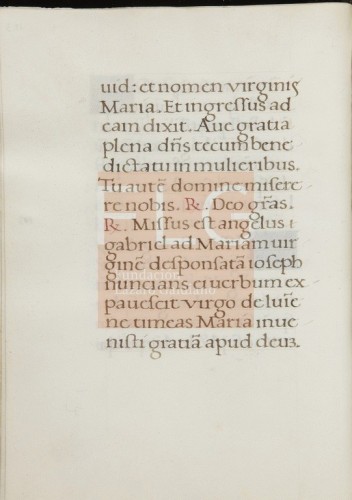 uid: et nomen virginis
Maria. Et ingressus ad
eam dixit. Aue gratia
plena dñs tecum bene
dicta tu in mulieribus.
Tu autẽ domine misere
re nobis. R. Deo grãs.
R. Missus est angelus
gabriel ad Mariam uir
ginẽ desponsatã ioseph
nuncians ei verbum ex
pauescit virgo de lumĩe
ne timeas Maria inue
nisti gratiã apud deuȝ